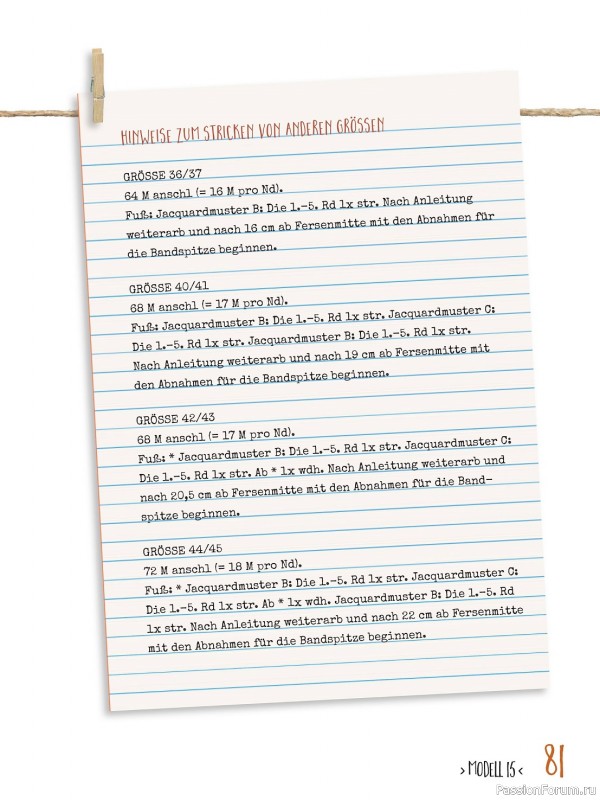 HINWEISE ZUM STRICKEN VON ANDEREN GRÖSSEN
GRÖSSE 36/37
64 M anschl (= 16 M pro Nd).
Fuß: Jacquardmuster B: Die 1.–5. Rd 1x str. Nach Anleitung
weiterarb und nach 16 cm ab Fersenmitte mit den Abnahmen für
die Bandspitze beginnen.
GRÖSSE 40/41
68 M anschl (= 17 M pro Nd).
Fuß: Jacquardmuster B: Die 1.–5. Rd 1x str. Jacquardmuster C:
Die 1.–5. Rd 1x str. Jacquardmuster B: Die 1.–5. Rd 1x str.
Nach Anleitung weiterarb und nach 19 cm ab Fersenmitte mit
den Abnahmen für die Bandspitze beginnen.
GRÖSSE 42/43
68 M anschl (= 17 M pro Nd).
Fuß: * Jacquardmuster B: Die 1.–5. Rd 1x str. Jacquardmuster C:
Die 1.–5. Rd 1x str. Ab * 1x wdh. Nach Anleitung weiterarb und
nach 20,5 cm ab Fersenmitte mit den Abnahmen für die Band-
spitze beginnen.
GRÖSSE 44/45
72 M anschl (= 18 M pro Nd).
Fuß: * Jacquardmuster B: Die 1.–5. Rd 1x str. Jacquardmuster C:
Die 1.–5. Rd 1x str. Ab * 1x wdh. Jacquardmuster B: Die 1.–5. Rd
1x str. Nach Anleitung weiterarb und nach 22 cm ab Fersenmitte
mit den Abnahmen für die Bandspitze beginnen.
› MODELL 15 ‹ 81
PassionForum.ru